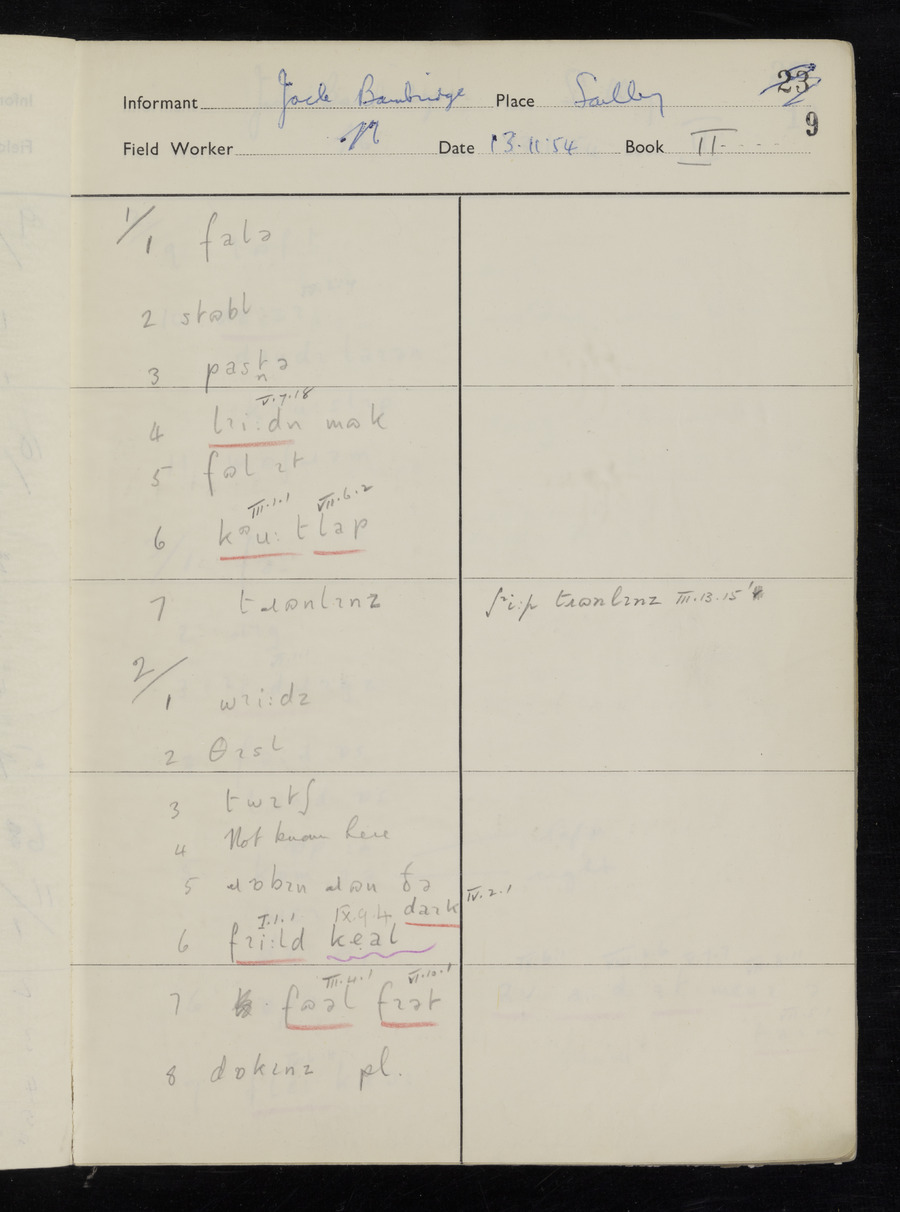 Informant Jack Bambridge Place Salley 23
9
Field Worker Date 13·11·54 Book II
1/
1 falə
2 stɒbl
3 pastə
n
V.7.18
4 bɹi:dn mɒk
5 fɒl ɪt
III.1.1 VII.6.2
6 kᵊu: tlap
7 tɹɒnlɪnz ʃᵊi:p tɹɒnlɪnz III.13.15
2/
1 wɪi:dz
2 θɪsl
3 twɪtʃ
4 Not known here
5 ɹɒbɪn ɹɒn ðə
dark IV.2.1
I.1.1 IX.9.4
6 fɪi:ld keal
III.4.1 VI.10.1
7 fɒəl fɪət
8 dɒkɪnz pl.